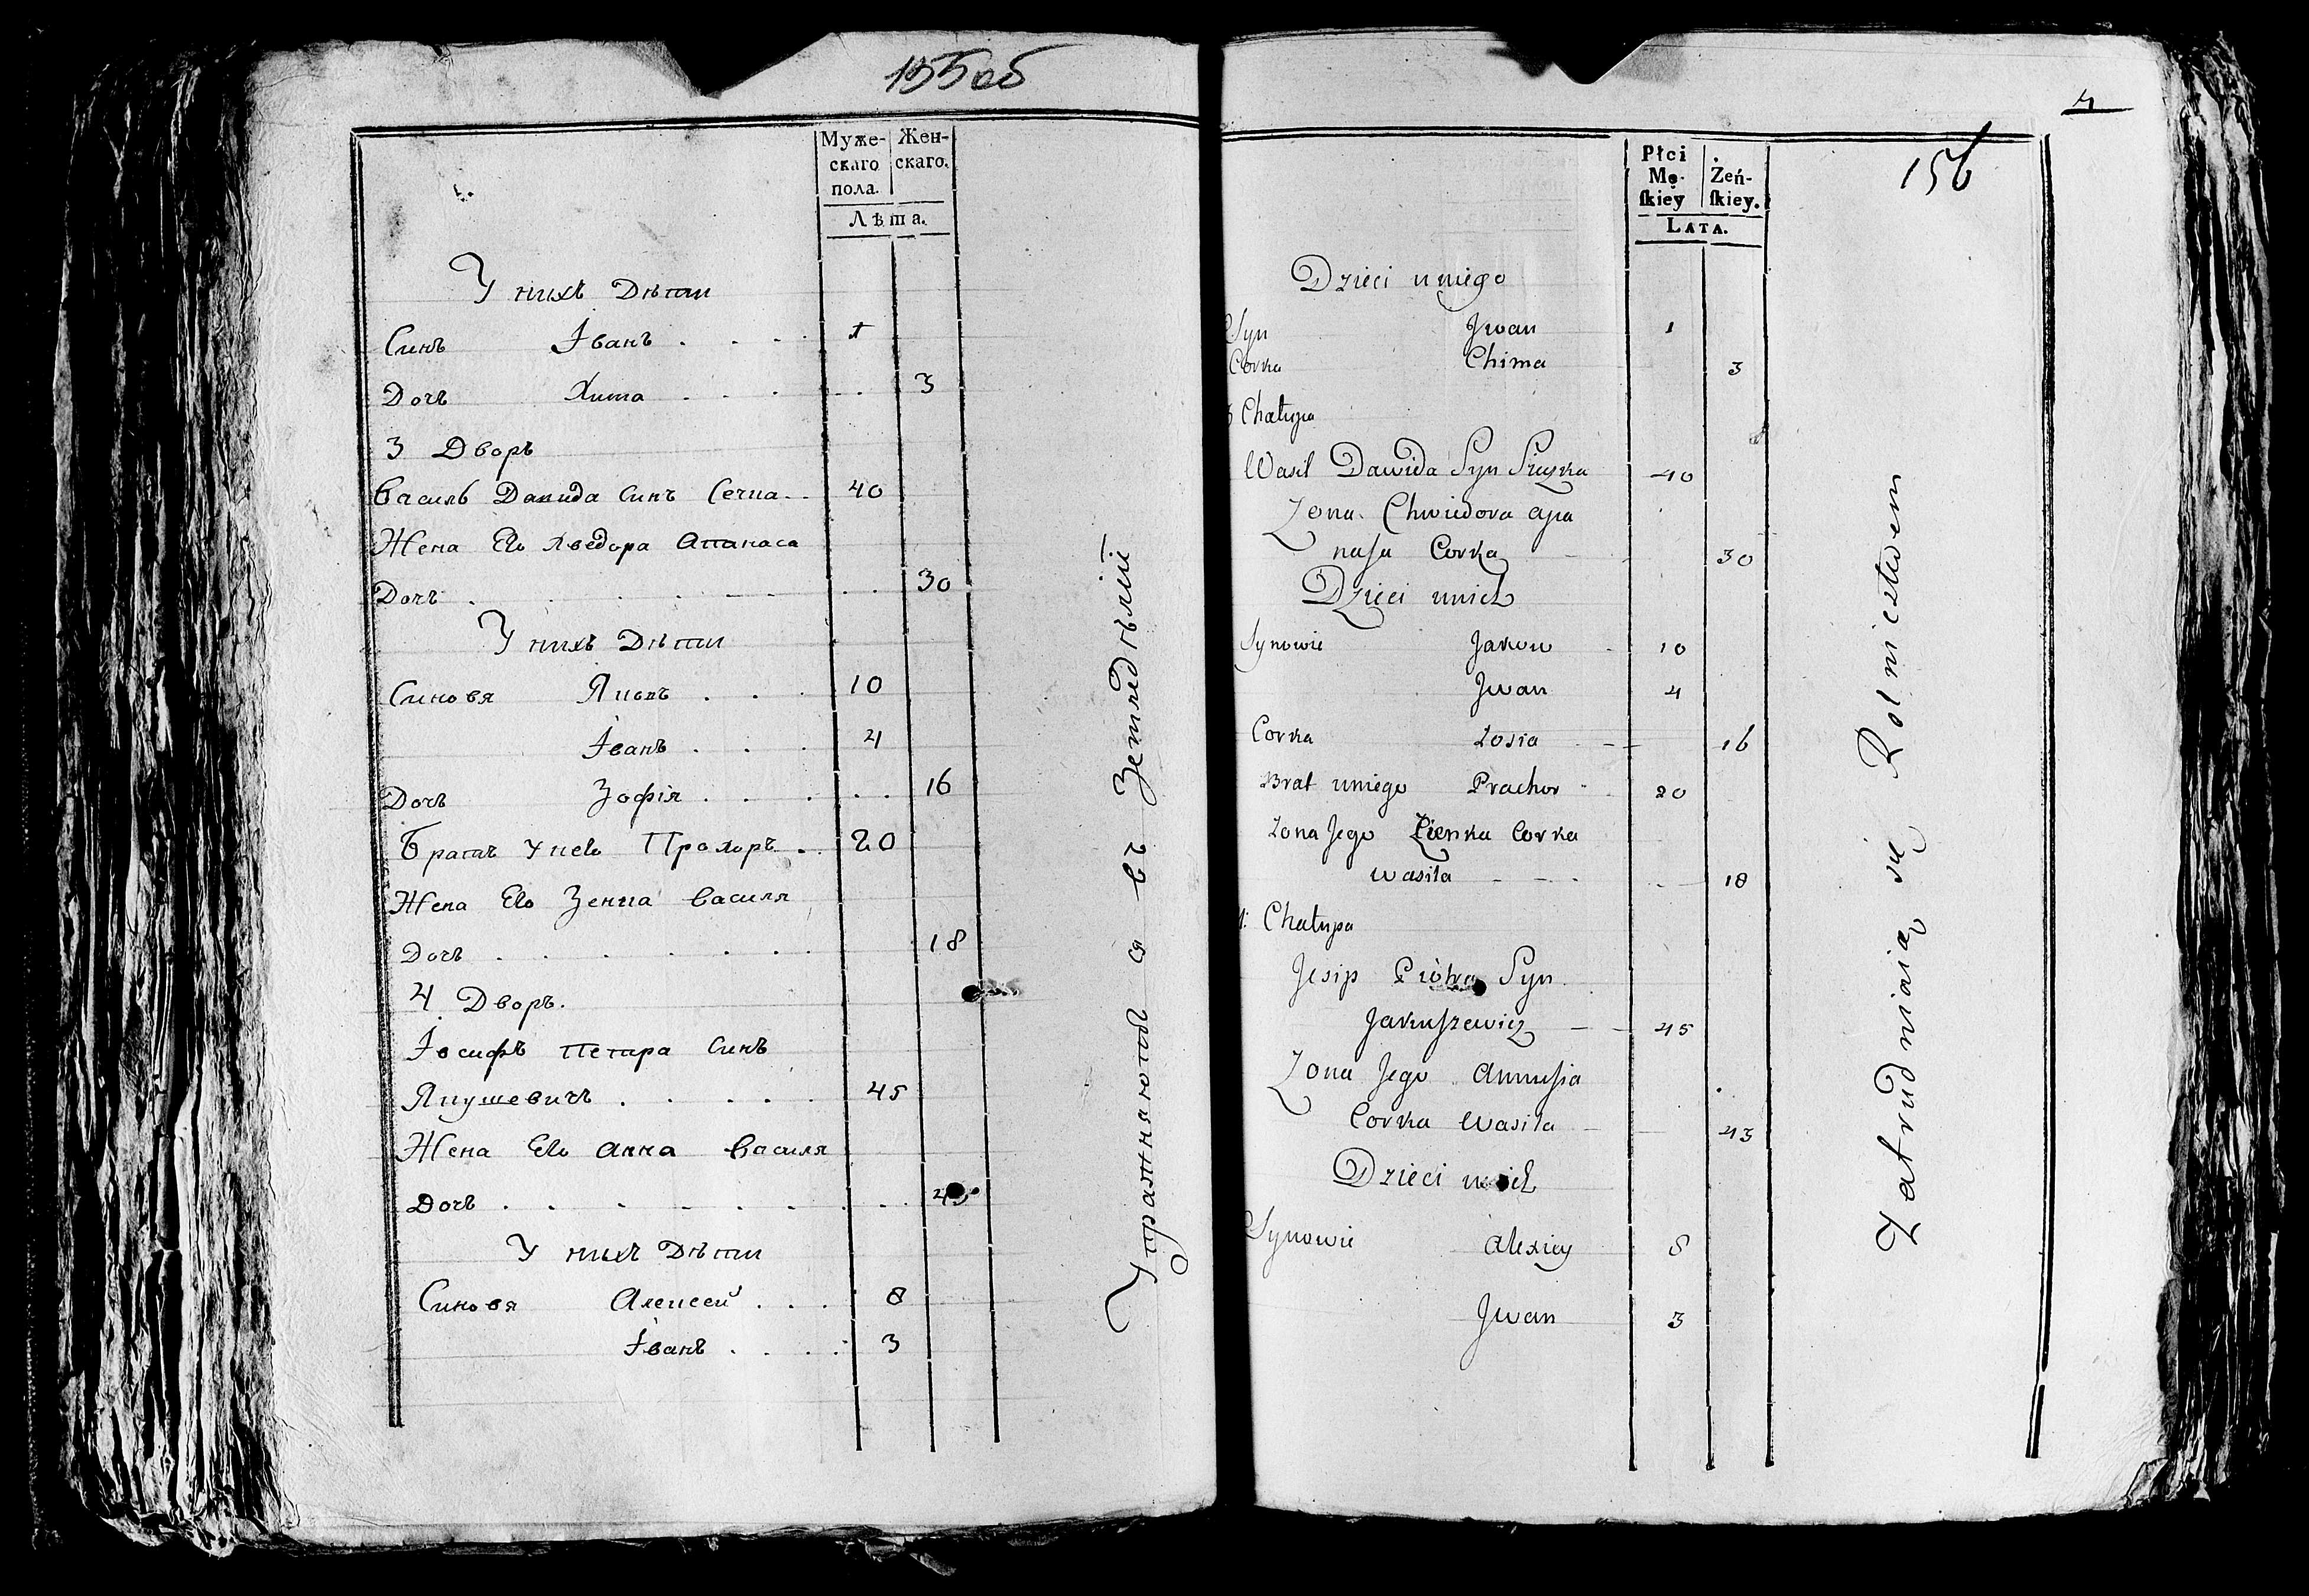 155об
Муже- Жен-
скаго скаго.
пола.
Лѣта.
У нихъ Дѣти
Синъ Іванъ . . . . 1
Дочъ Хима . . . . . 3
3 Дворъ
Василь Давида Синъ Сечка . . 40
Жена Его Хведора Апанаса
Дочъ . . . . . . 30
У нихъ Дѣти
Синовя Яковъ . . . 10
Іванъ . . . 4
Дочъ Зофія . . . . . 16
Братъ У нево Прохоръ . . 20
Жена Его Зенка Василя
Дочъ . . . . . . 18
4 Дворъ.
Іосифъ Петра Синъ
Якушевичъ . . . . . 45
Жена Его Анна Василя
Дочъ . . . . . . . .
У нихъ Дѣти
Синовя Алексей . . . 8
Іванъ . . . . 3
Упражняютъ ся въ
4
156
Płci Żeń-
Mę- ſkiey.
ſkiey
LATA.
Dzieci uniego
Syn Jwan 1
Corka Chima 3
3 Chałupa
Wasil Dawida Syn 40
Zona Chwiedora apa
naſa Corka 30
Dzieci unich
Synowie Jakow 10
Jwan 4
Corka Zosia 16
Brat uniego Prachor 20
Zona Jego Zienka Corka
Wasila 18
4: Chałupa
Jesip Piotra Syn
Jakuſzewicz 45
Zona Jego Annuſia
Corka Wasila 43
Dzieci unich
Synowie Alexiey 8
Jwan 3
Zatrudniaią się Rolnictwem